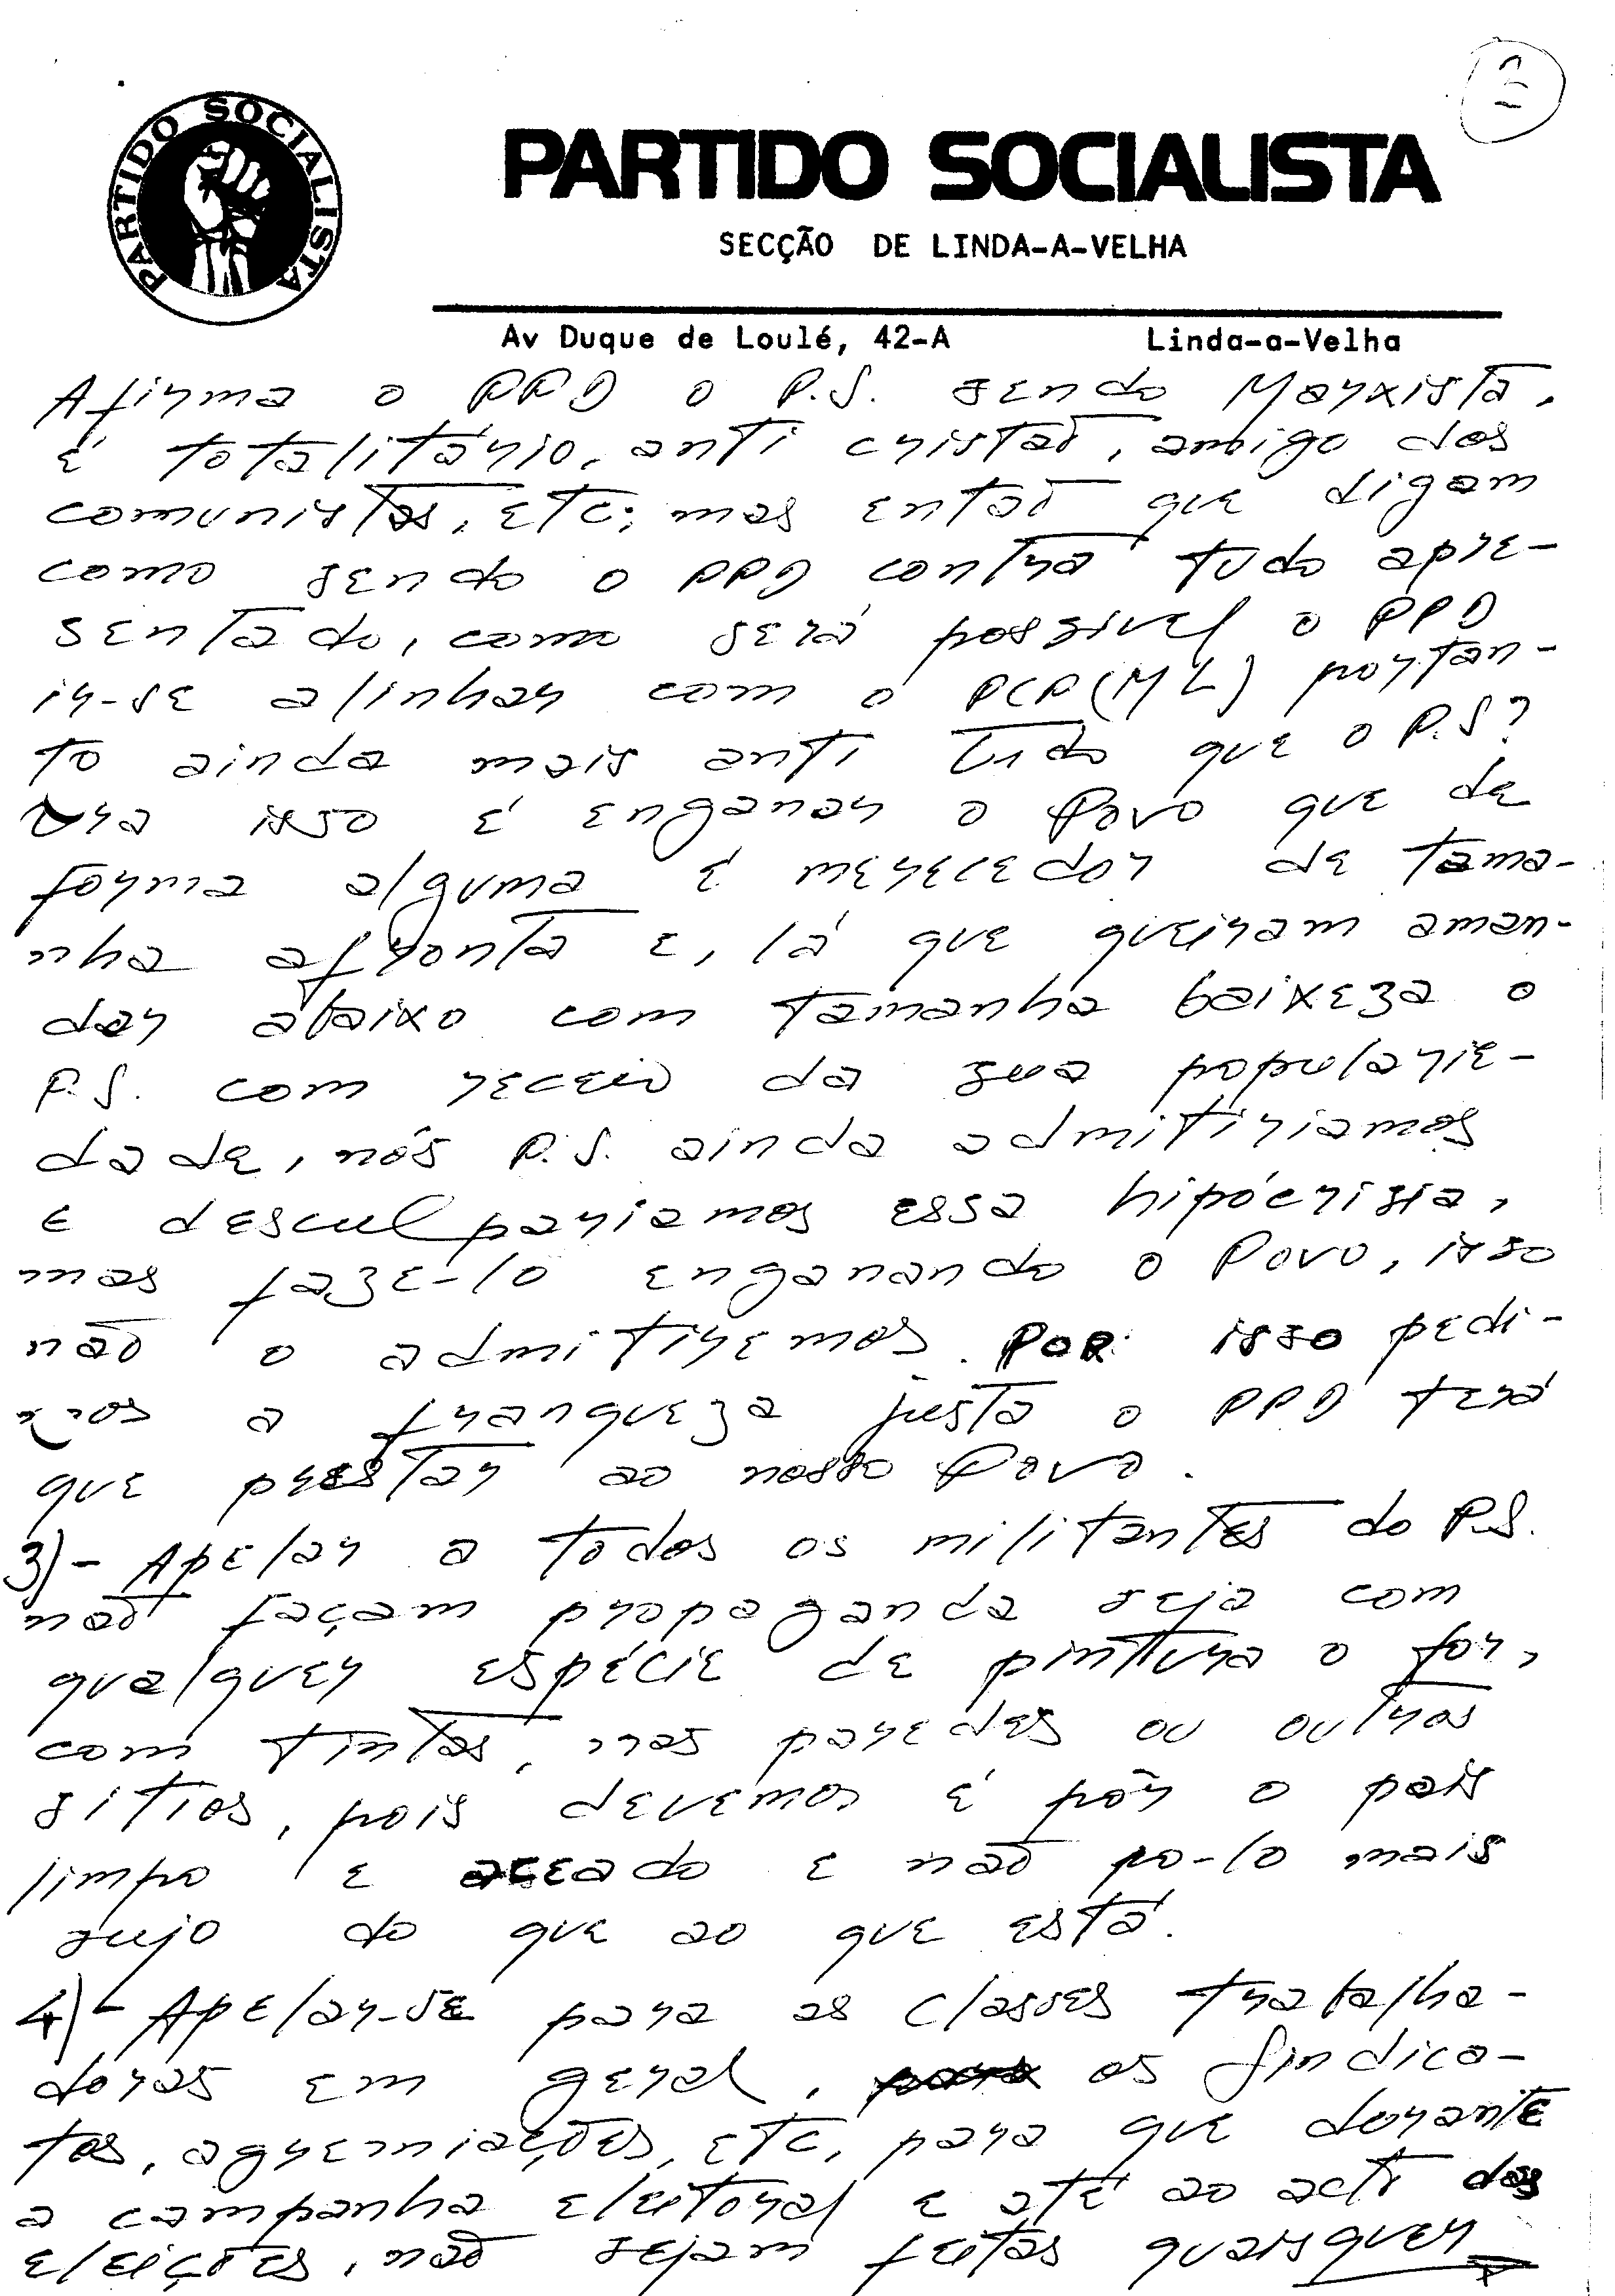 2
PARTIDO SOCIALISTA
PARTIDO SOCIALISTA
SECÇÃO DE LINDA-A-VELHA
Av Duque de Loulé, 42-A Linda-a-Velha
Afirma o PPD o P.S. sendo Marxista,
é totalitário, anti cristão, amigo dos
comunistas, etc; mas então que digam
como sendo o PPD contra tudo apre-
sentado, como será possivel o PPD
ir-se alinhar com o PCP(ML) portan-
to ainda mais anti tudo que o P.S?
Ora isso é enganar o Povo que de
forma alguma é merecedor de tama-
nha afronta e, lá que queiram aman-
dar abaixo com tamanha baixeza o
P.S. com receio da sua popularie-
dade, nós P.S. ainda admitiriamos
e desculpariamos essa hipócrisia,
mas faze-lo enganando o Povo, isso
não o admitiremos. Por isso pedi-
mos a franqueza justa o PPD terá
que prestar ao nosso Povo.
3)- Apelar a todos os militantes do P.S.
não façam propaganda seja com
qualquer espécie de pinttura o for,
com tintas, nas paredes ou outros
sitios, pois devemos é pôr o pais
limpo e aceado e não po-lo mais
sujo do que ao que está.
4)- Apelar-se para as classes trabalha-
doras em geral, os Sindica-
tos, agremiações, etc, para que durante
a campanha eleitoral e até ao acto das
eleições, não sejam feitas quaisquer